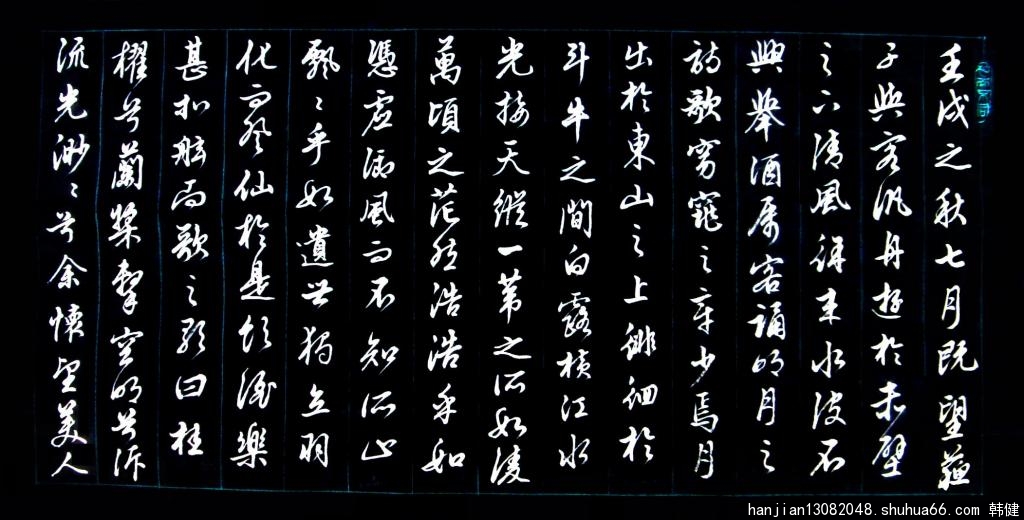 壬戌之秋七月既望蘇
子與客汎舟遊於赤壁
之下清風徐來水波不
興舉酒属客誦明月之
詩歌窈窕之章少焉月
出於東山之上徘徊於
斗牛之間白露横江水
光接天縱一葦之所如凌
萬頃之茫然浩浩乎如
憑虛御風而不知所止
飄〻乎如遺世獨立羽
化而登仙於是飲酒樂
甚扣舷而歌之歌曰桂
櫂兮蘭槳擊空明兮泝
流光渺〻兮余懷望美人
hanjian13082048.shuhua66.com 韩健